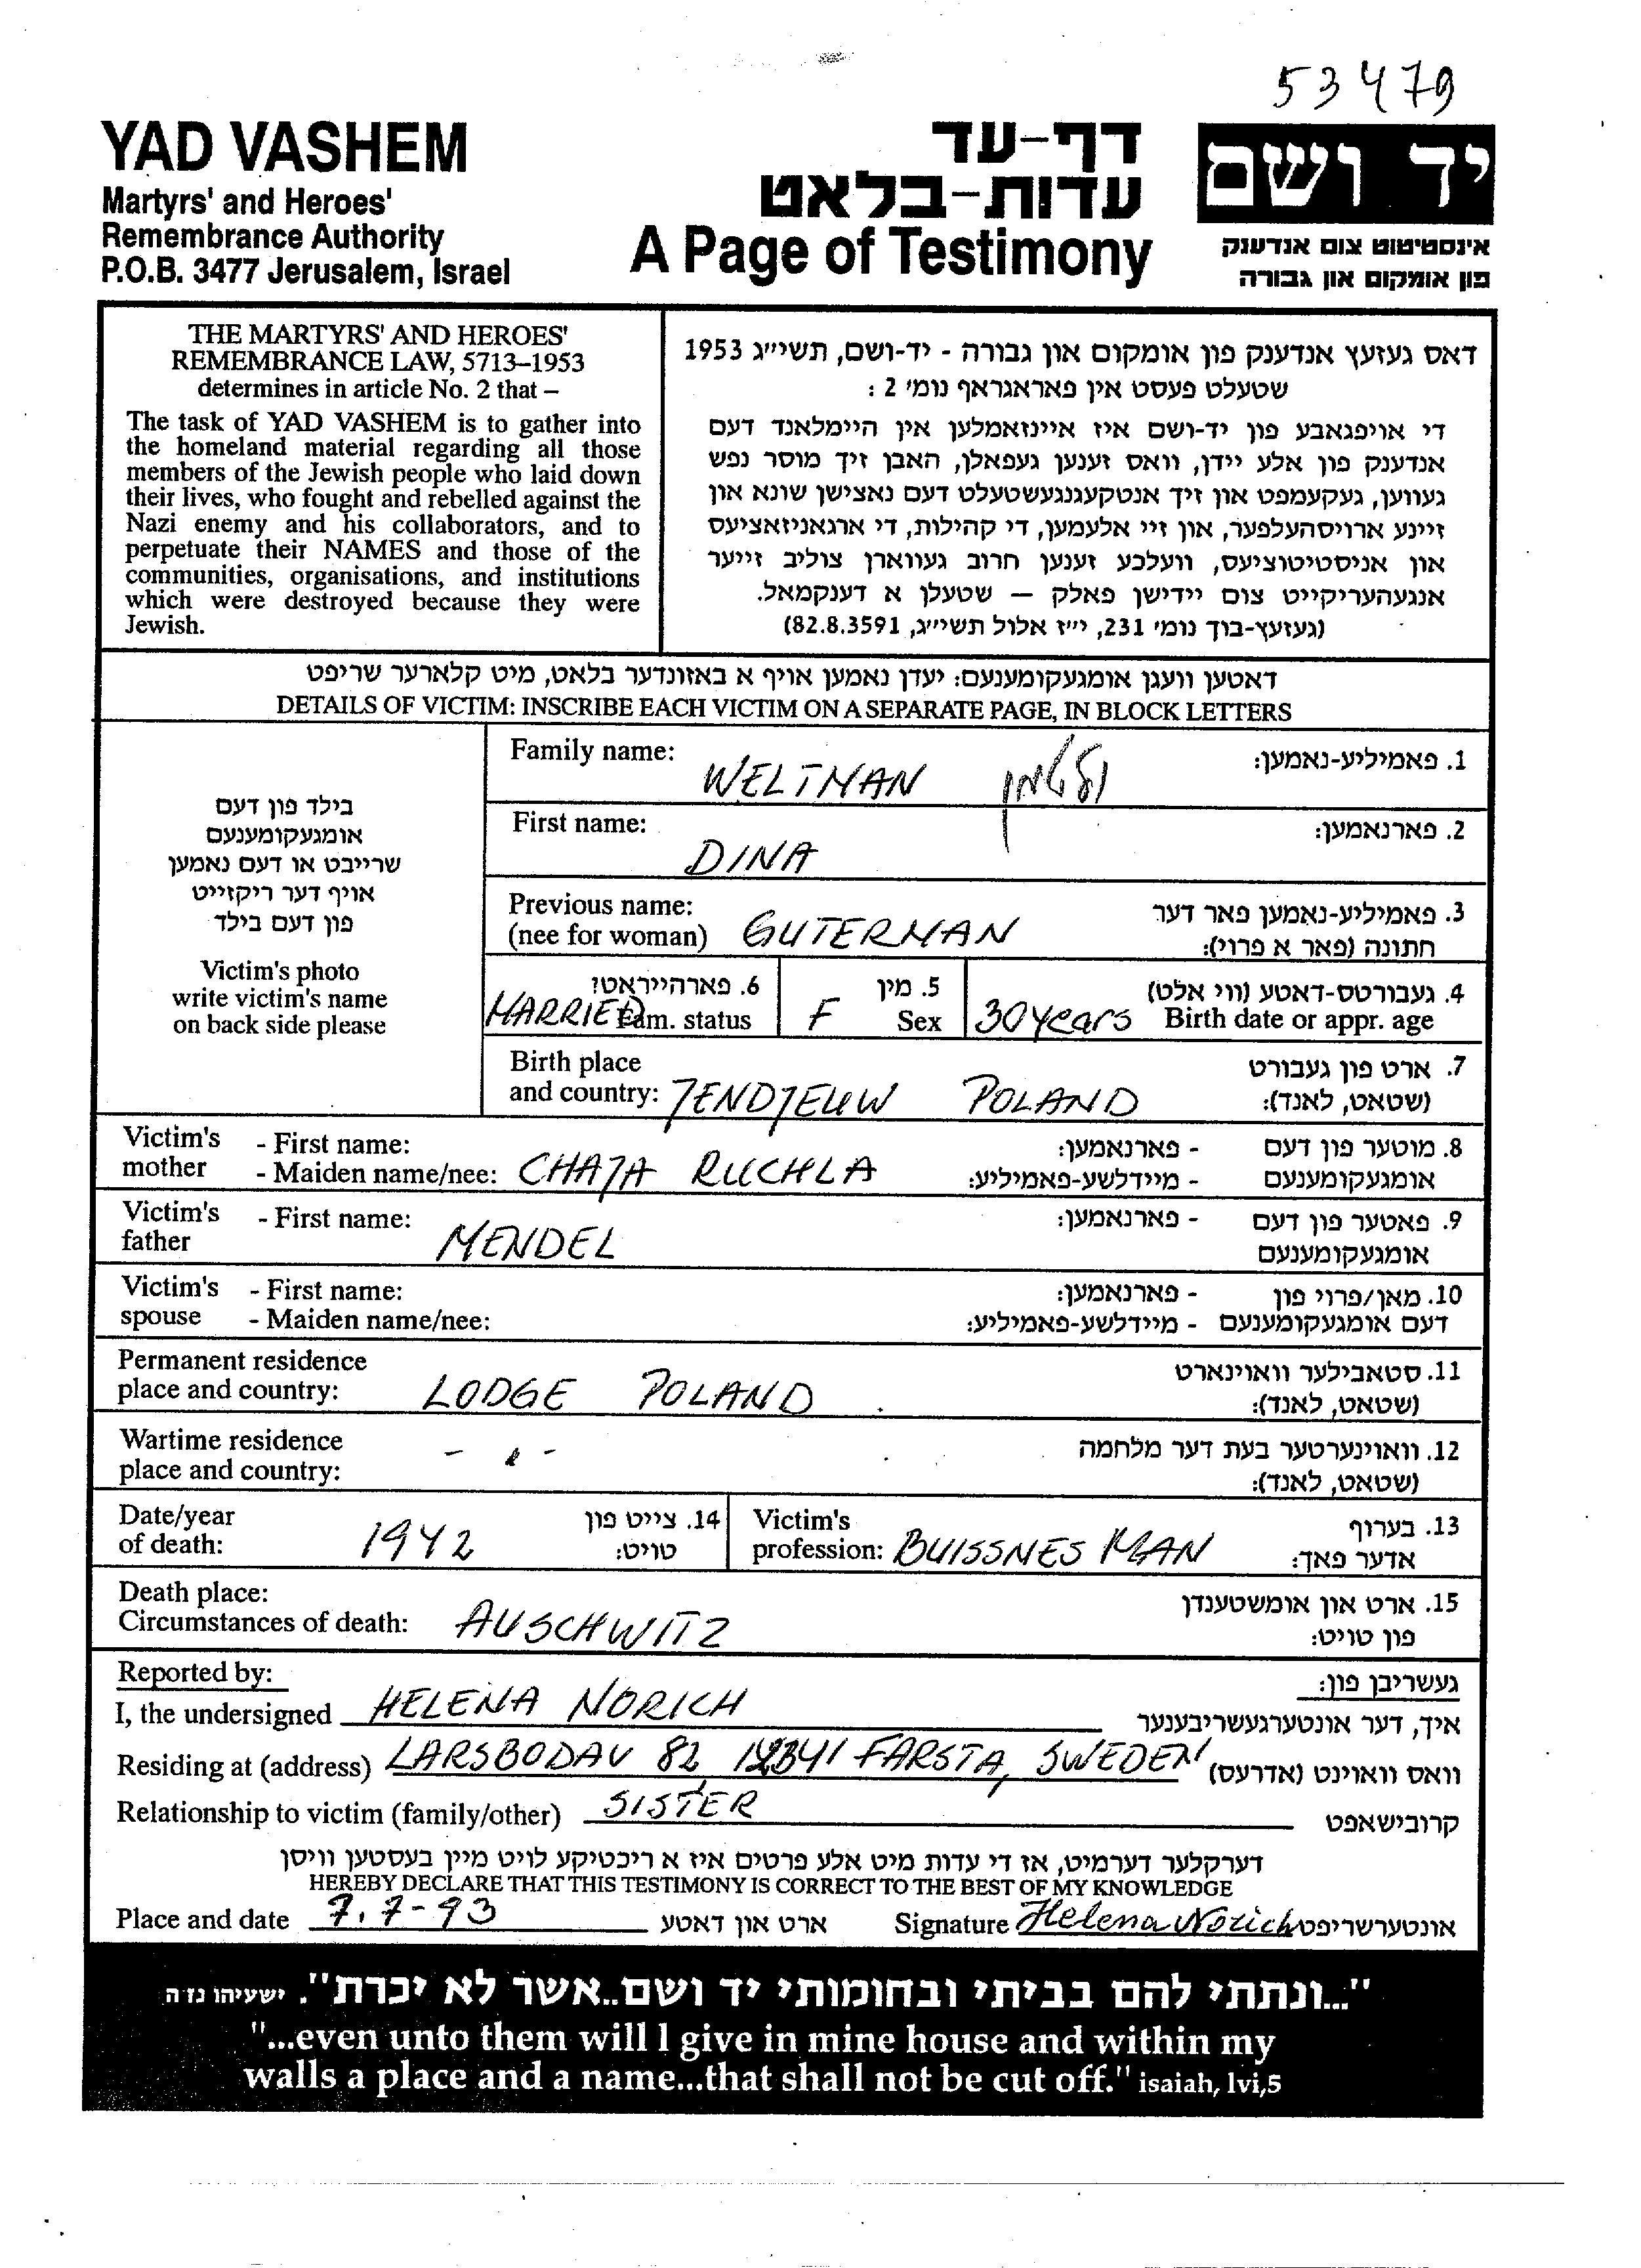 53479
YAD VASHEM
Martyrs' and Heroes'
Remembrance Authority
P.O.B. 3477 Jerusalem, Israel
דף-עד
עדות-בלאט
A Page of Testimony
יד ושם
אינסטיטוט צום אנדענק
פון אומקום און גבורה
THE MARTYRS' AND HEROES'
REMEMBRANCE LAW, 5713–1953
determines in article No. 2 that –
The task of YAD VASHEM is to gather into
the homeland material regarding all those
members of the Jewish people who laid down
their lives, who fought and rebelled against the
Nazi enemy and his collaborators, and to
perpetuate their NAMES and those of the
communities, organisations, and institutions
which were destroyed because they were
Jewish.
דאס געזעץ אנדענק פון אומקום און גבורה - יד-ושם, תשי״ג 1953
שטעלט פעסט אין פאראגראף נומ׳ 2 :
די אויפגאבע פון יד-ושם איז איינזאמלען אין היימלאנד דעם
אנדענק פון אלע יידן, וואס זענען געפאלן, האבן זיך מוסר נפש
געווען, געקעמפט און זיך אנטקעגנגעשטעלט דעם נאצישן שונא און
זיינע ארויסהעלפער, און זיי אלעמען, די קהילות, די ארגאניזאציעס
און אניסטיטוציעס, וועלכע זענען חרוב געווארן צוליב זייער
אנגעהעריקייט צום יידישן פאלק — שטעלן א דענקמאל.
(געזעץ-בוך נומ׳ 231, י״ז אלול תשי״ג, 82.8.3591)
דאטען וועגן אומגעקומענעם: יעדן נאמען אויף א באזונדער בלאט, מיט קלארער שריפט
DETAILS OF VICTIM: INSCRIBE EACH VICTIM ON A SEPARATE PAGE, IN BLOCK LETTERS
בילד פון דעם
אומגעקומענעם
שרייבט או דעם נאמען
אויף דער ריקזייט
פון דעם בילד
Victim's photo
write victim's name
on back side please
Family name: WELTMAN ולטמן 1. פאמיליע-נאמען:
First name: DINA 2. פארנאמען:
Previous name: 3. פאמיליע-נאמען פאר דער
(nee for woman) GUTERMAN חתונה (פאר א פרוי):
6. פארהייראט? 5. מין 4. געבורטס-דאטע (ווי אלט)
MARRIED Fam. status F Sex 30 years Birth date or appr. age
Birth place 7. ארט פון געבורט
and country: JENDJEUW POLAND (שטאט, לאנד):
Victim's - First name: - פארנאמען: 8. מוטער פון דעם
mother - Maiden name/nee: CHAJA RUCHLA - מיידלשע-פאמיליע: אומגעקומענעם
Victim's - First name: - פארנאמען: 9. פאטער פון דעם
father MENDEL אומגעקומענעם
Victim's - First name: - פארנאמען: 10. מאן/פרוי פון
spouse - Maiden name/nee: - מיידלשע-פאמיליע: דעם אומגעקומענעם
Permanent residence 11. סטאבילער וואוינארט
place and country: LODGE POLAND (שטאט, לאנד):
Wartime residence 12. וואוינערטער בעת דער מלחמה
place and country: (שטאט, לאנד):
Date/year 14. צייט פון Victim's 13. בערוף
of death: 1942 טויט: profession: BUISSNES MAN אדער פאך:
Death place: 15. ארט און אומשטענדן
Circumstances of death: AUSCHWITZ פון טויט:
Reported by: געשריבן פון:
I, the undersigned HELENA NORICH איך, דער אונטערגעשריבענער
Residing at (address) LARSBODAV 82 12341 FARSTA, SWEDEN וואס וואוינט (אדרעס)
Relationship to victim (family/other) SISTER קרובישאפט
דערקלער דערמיט, אז די עדות מיט אלע פרטים איז א ריכטיקע לויט מיין בעסטען וויסן
HEREBY DECLARE THAT THIS TESTIMONY IS CORRECT TO THE BEST OF MY KNOWLEDGE
Place and date 7.7-93 ארט און דאטע Signature Helena Norich אונטערשריפט
"...ונתתי להם בביתי ובחומותי יד ושם..אשר לא יכרת". ישעיהו נז ה
"...even unto them will I give in mine house and within my
walls a place and a name...that shall not be cut off." isaiah, lvi,5